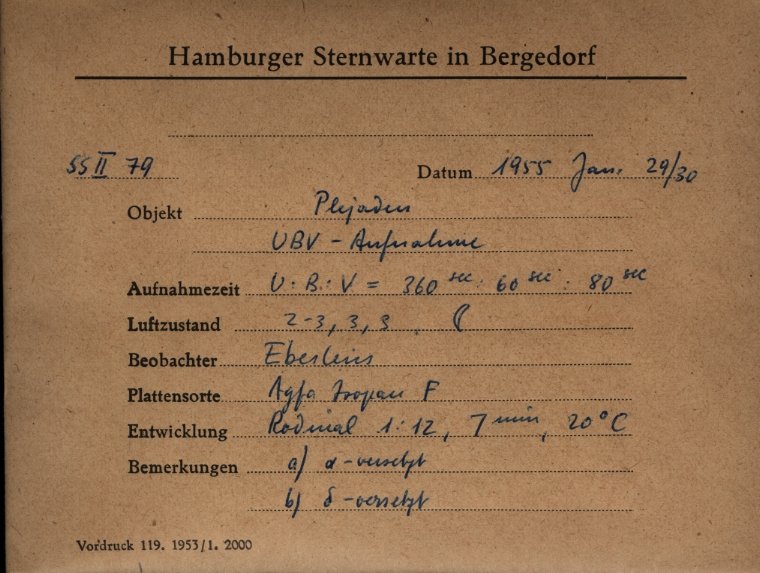 Hamburger Sternwarte in Bergedorf
SS II 79 Datum 1955 Jan. 29/30
Objekt Plejaden
UBV - Aufnahme
Aufnahmezeit U : B : V = 360 sec : 60 sec : 80 sec
Luftzustand 2-3, 3, 3
Beobachter
Plattensorte Agfa Isopan F
Entwicklung Rodinal 1:12, 7 min, 20°C
Bemerkungen a) α-versetzt
b) δ-versetzt
Vordruck 119. 1953/1. 2000